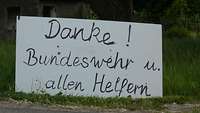 Danke!
Bundeswehr u.
allen Helfern